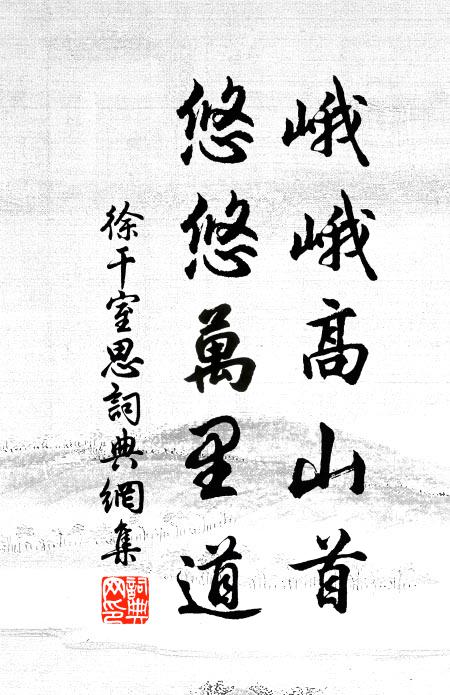 峨峨高山首
悠悠萬里道
徐干室思詞典網集
詞典
网印